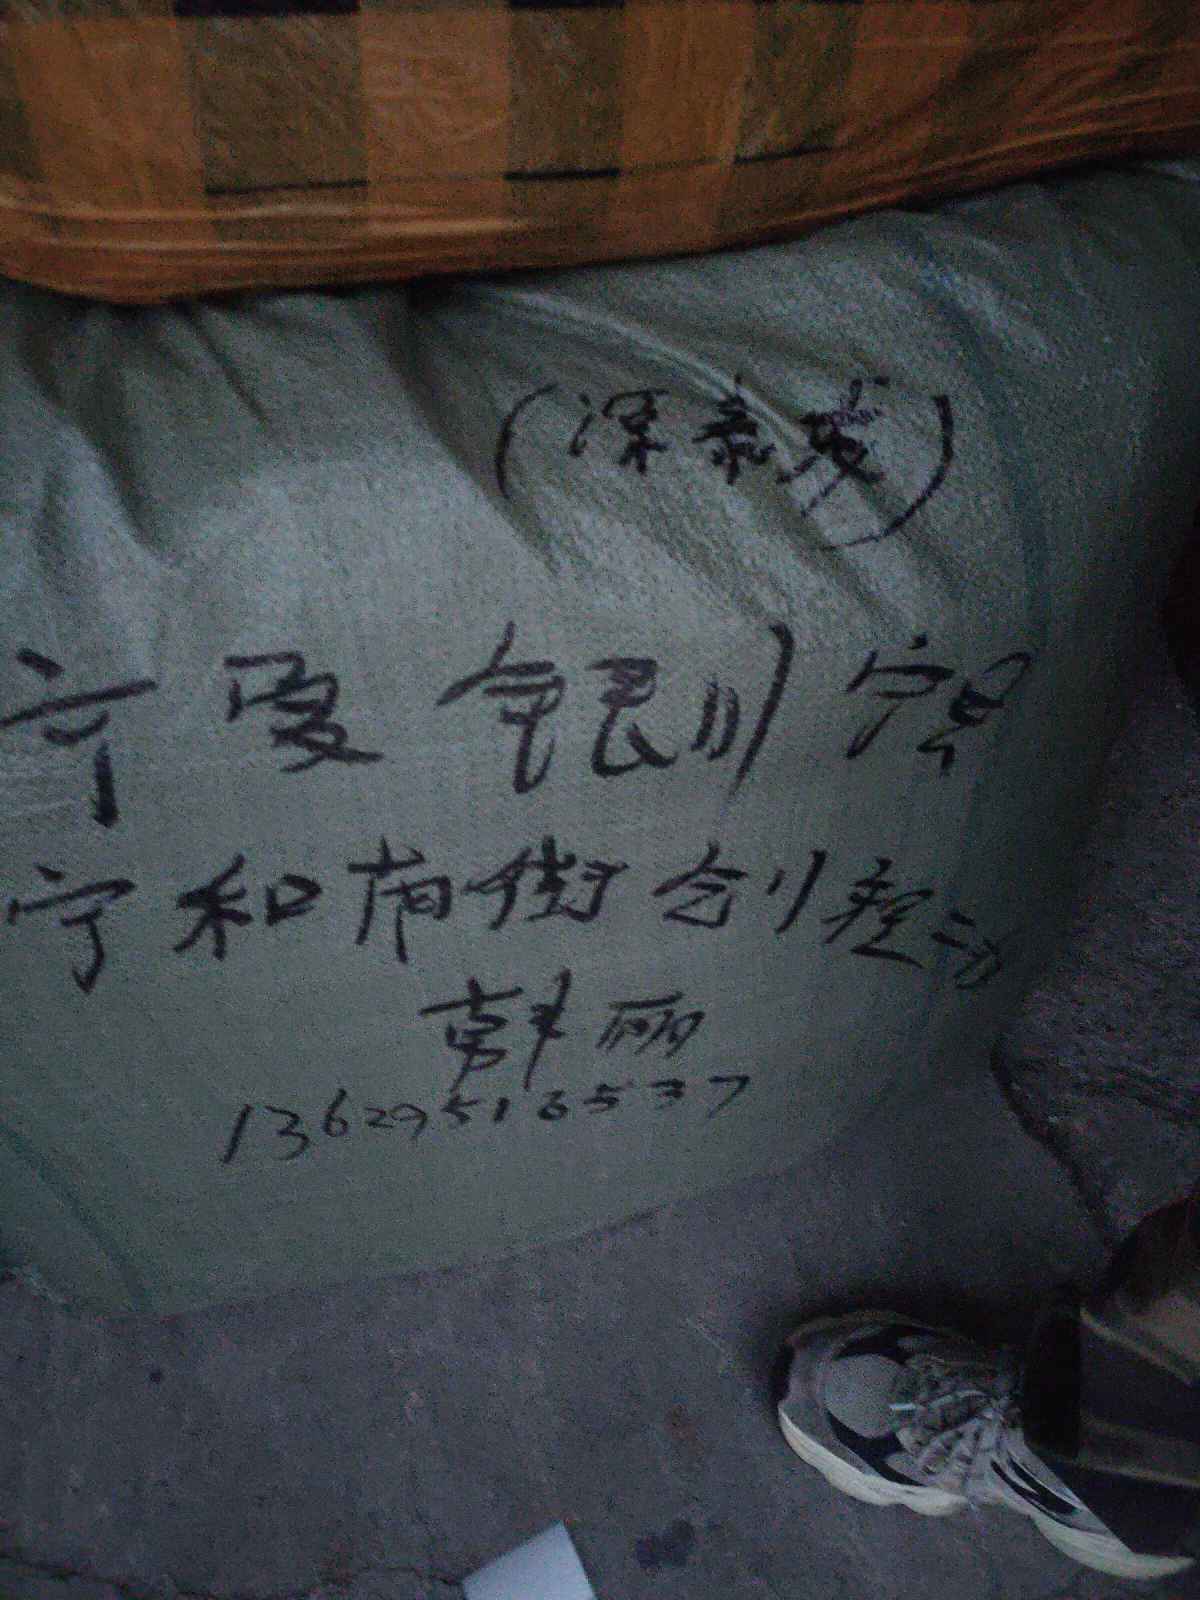 (深泰
宁夏 银川
宁和南街创
郭丽
13629516537